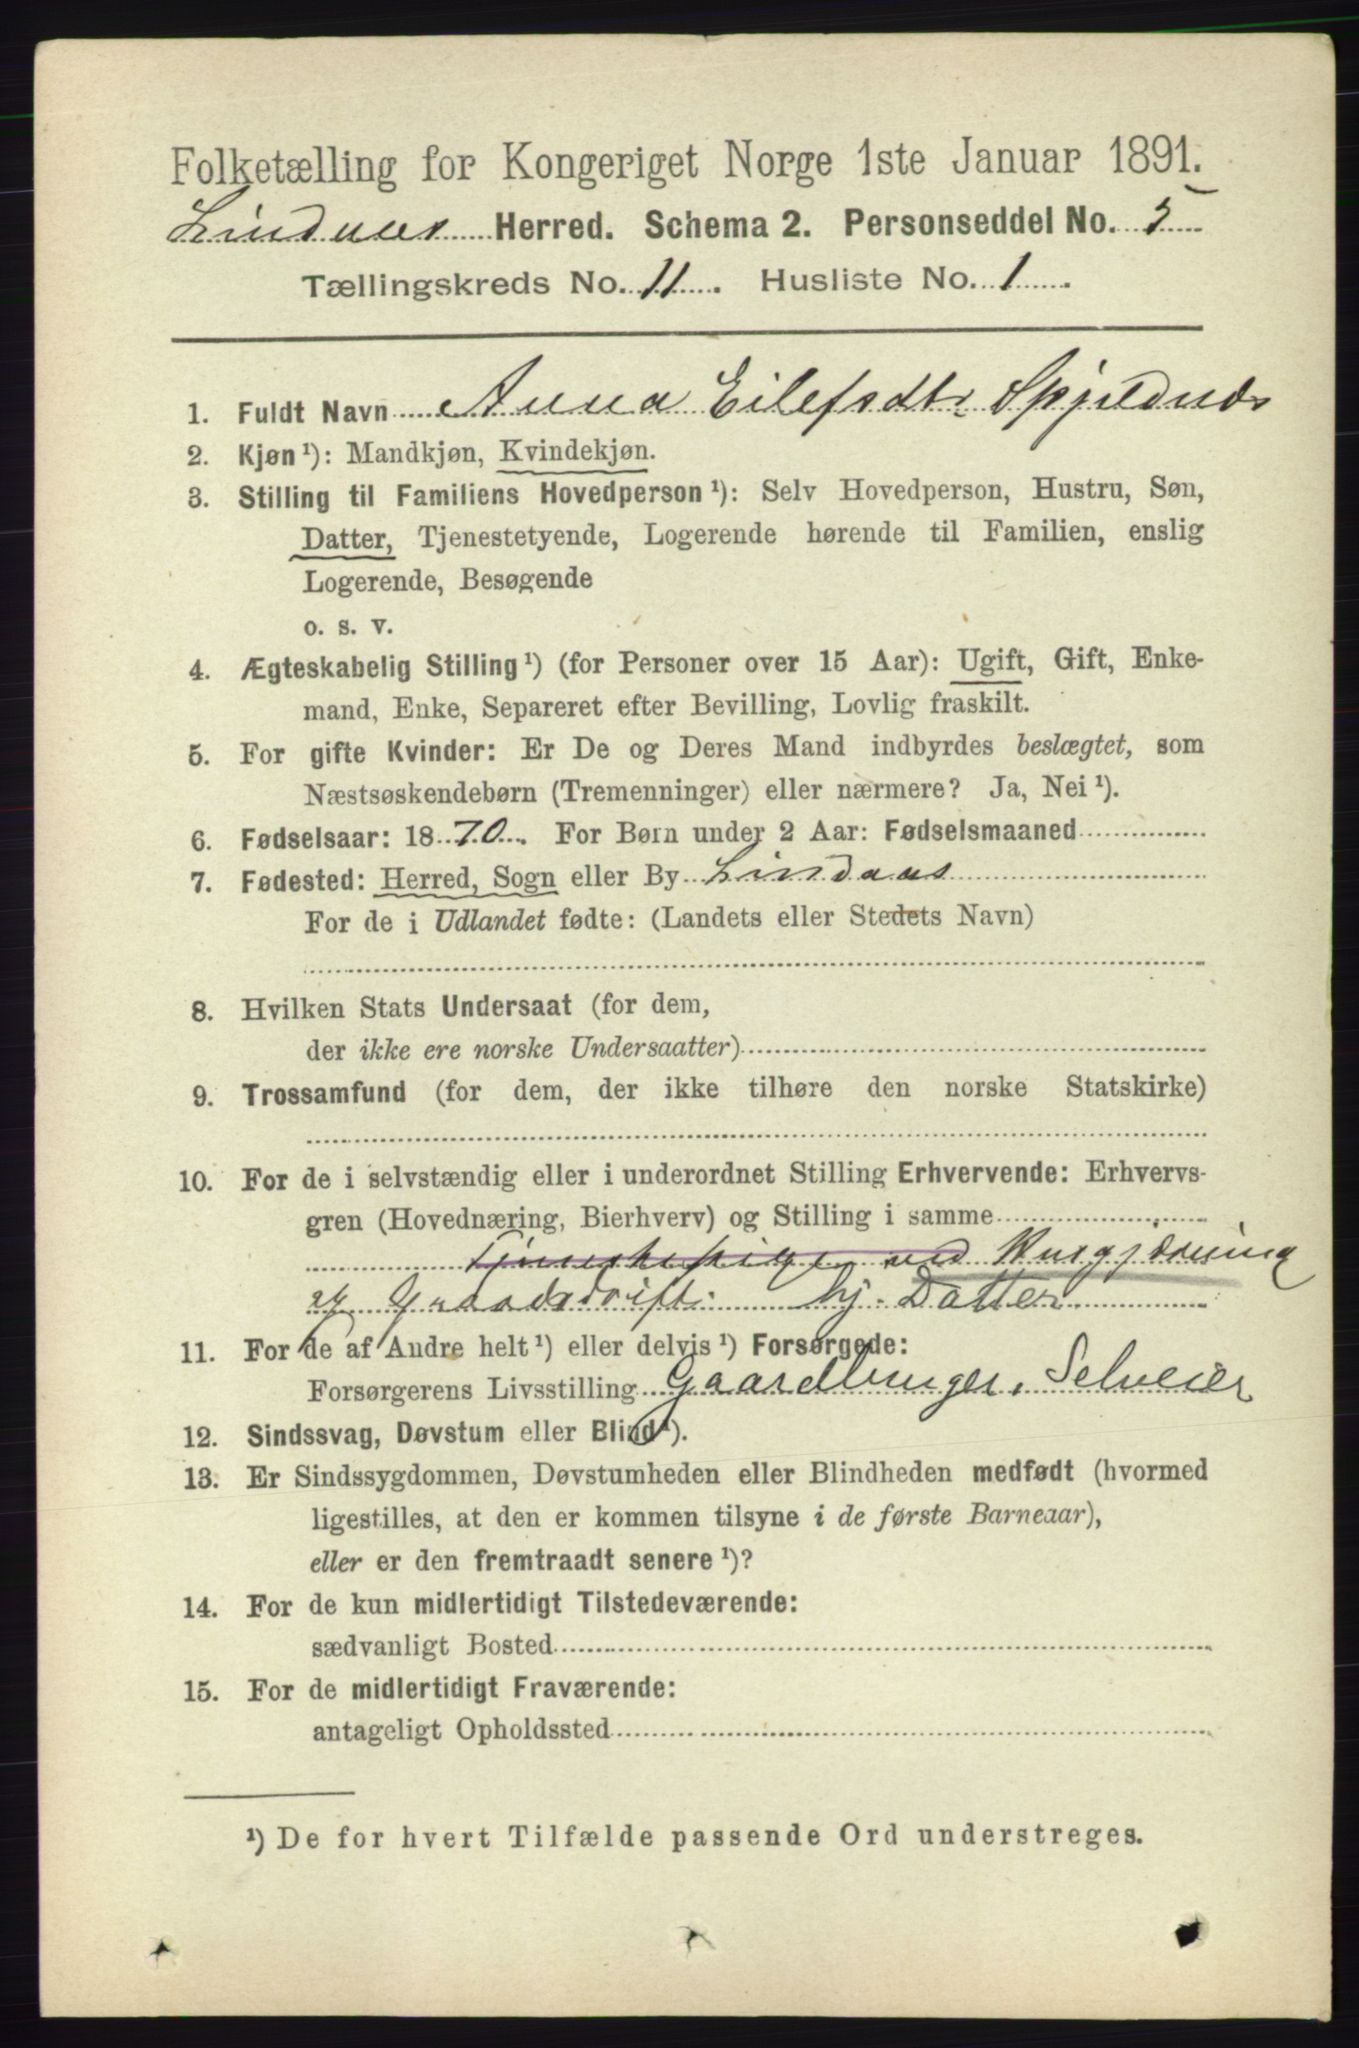 Folketælling for Kongeriget Norge 1ste Januar 1891.
Lindaas Herred. Schema 2. Personseddel No. 5
Tællingskreds No. 11. Husliste No. 1.
1. Fuldt Navn Anna Eilefsdtr Spjeldnæs
2. Kjøn ¹): Mandkjøn, Kvindekjøn.
3. Stilling til Familiens Hovedperson ¹): Selv Hovedperson, Hustru, Søn,
Datter, Tjenestetyende, Logerende hørende til Familien, enslig
Logerende, Besøgende
o. s. v.
4. Ægteskabelig Stilling ¹) (for Personer over 15 Aar): Ugift, Gift, Enke-
mand, Enke, Separeret efter Bevilling, Lovlig fraskilt.
5. For gifte Kvinder: Er De og Deres Mand indbyrdes beslægtet, som
Næstsøskendebørn (Tremenninger) eller nærmere? Ja, Nei ¹).
6. Fødselsaar: 1870. For Børn under 2 Aar: Fødselsmaaned
7. Fødested: Herred, Sogn eller By Lindaas
For de i Udlandet fødte: (Landets eller Stedets Navn)
8. Hvilken Stats Undersaat (for dem,
der ikke ere norske Undersaatter)
9. Trossamfund (for dem, der ikke tilhøre den norske Statskirke)
10. For de i selvstændig eller i underordnet Stilling Erhvervende: Erhvervs-
gren (Hovednæring, Bierhverv) og Stilling i samme
Tjenestepige ved Husgjerning
og Gaardsdrift. hj. Datter
11. For de af Andre helt ¹) eller delvis ¹) Forsørgede:
Forsørgerens Livsstilling Gaardbruger, Selveier
12. Sindssvag, Døvstum eller Blind ¹).
13. Er Sindssygdommen, Døvstumheden eller Blindheden medfødt (hvormed
ligestilles, at den er kommen tilsyne i de første Barneaar),
eller er den fremtraadt senere ¹)?
14. For de kun midlertidigt Tilstedeværende:
sædvanligt Bosted
15. For de midlertidigt Fraværende:
antageligt Opholdssted
¹) De for hvert Tilfælde passende Ord understreges.